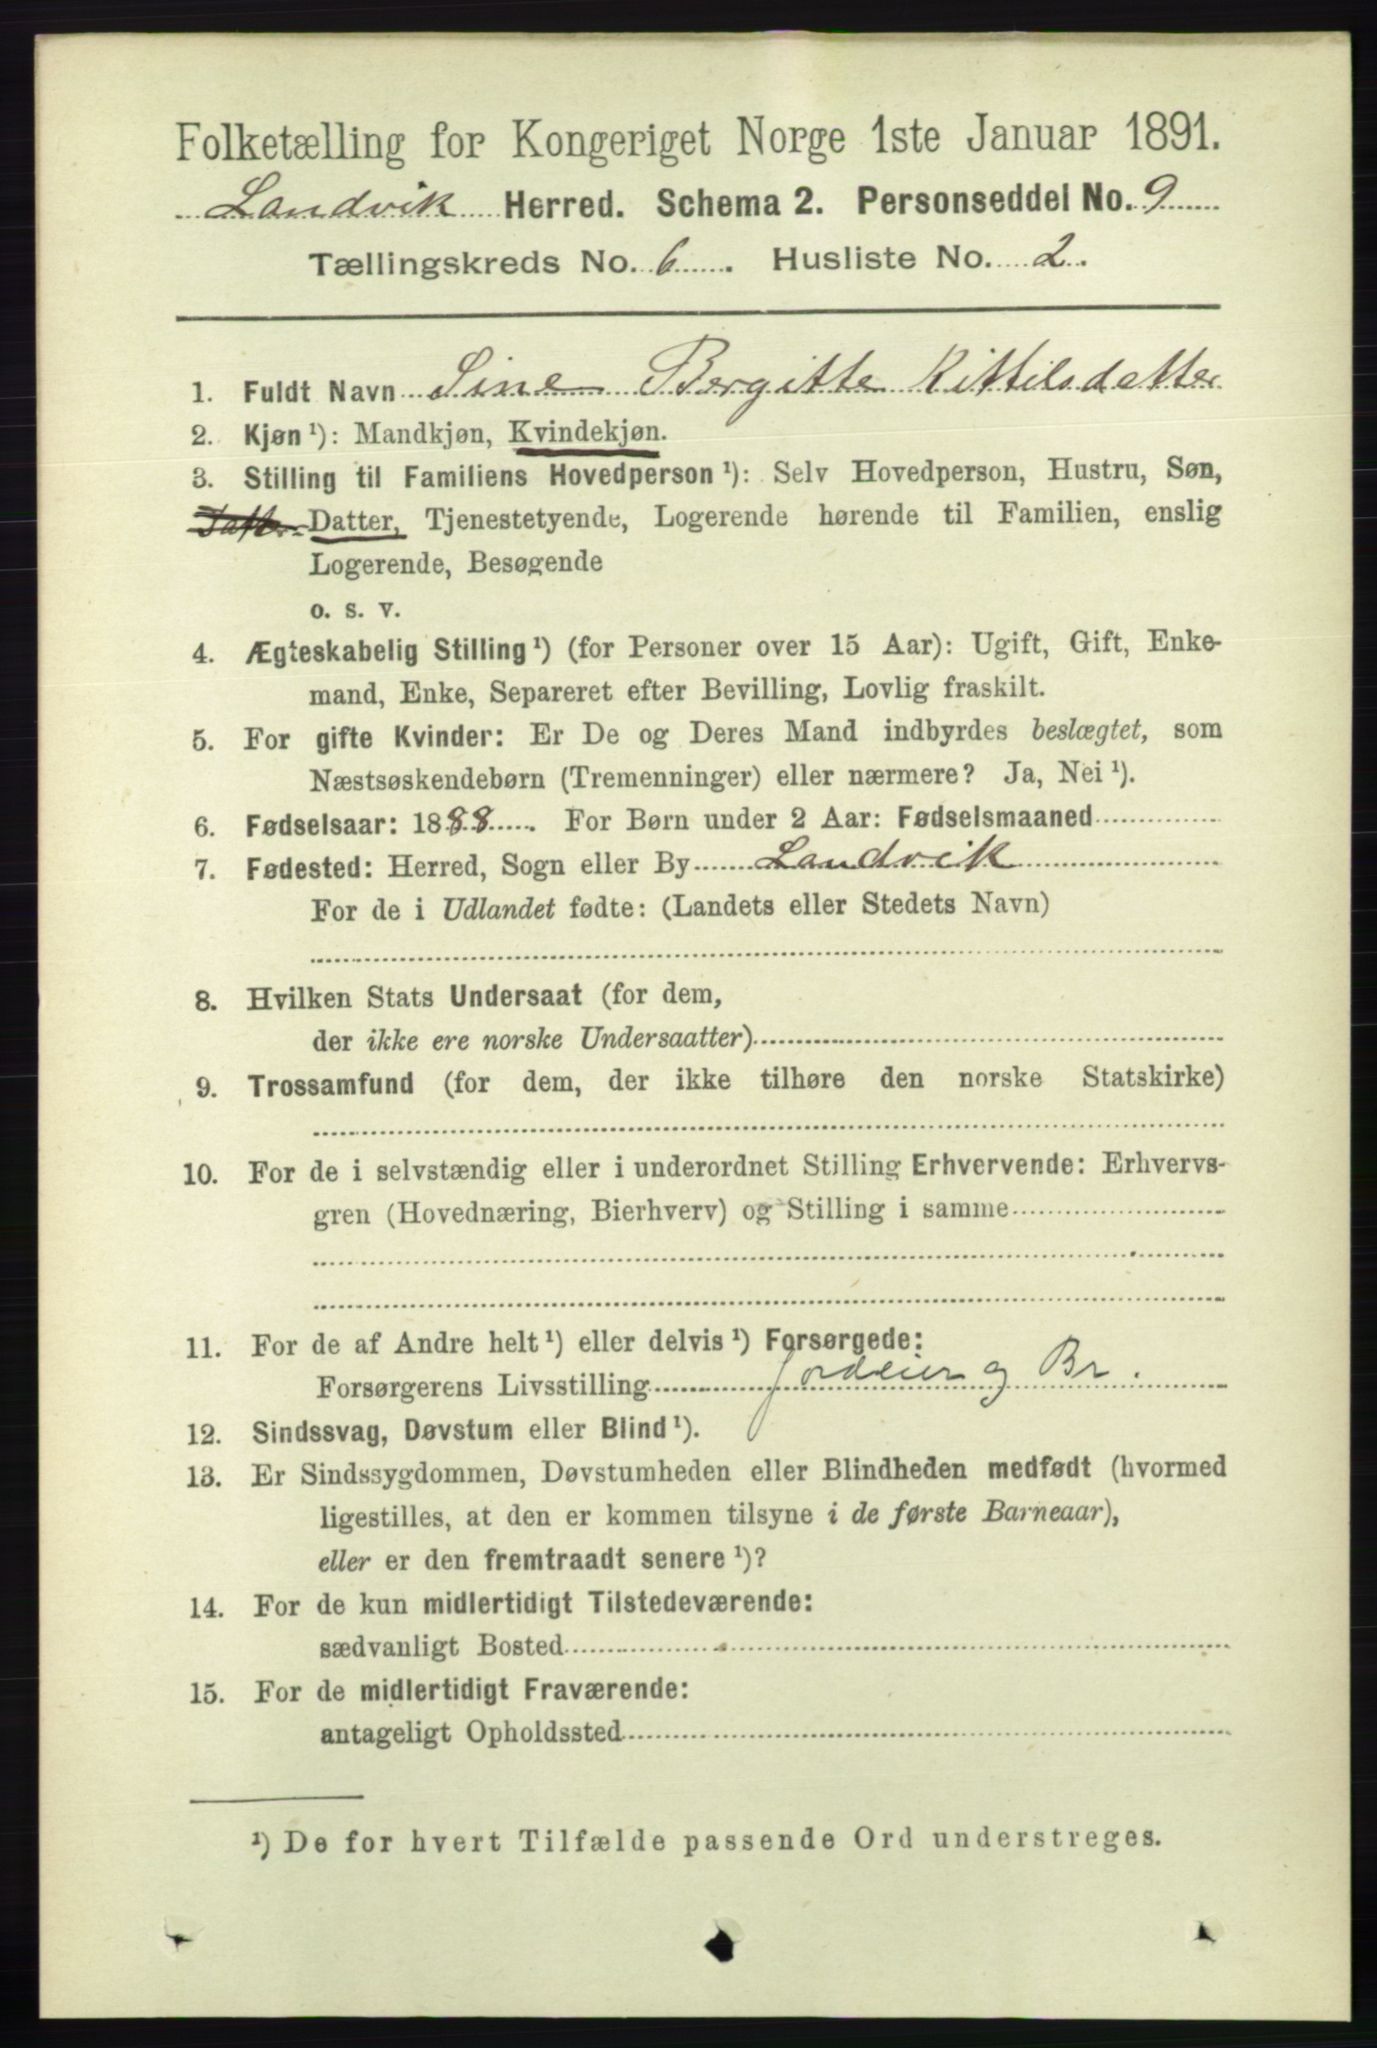 Folketælling for Kongeriget Norge 1ste Januar 1891.
Landvik Herred. Schema 2. Personseddel No. 9
Tællingskreds No. 6. Husliste No. 2.
1. Fuldt Navn Sine Bergitte Kittilsdatter
2. Kjøn¹): Mandkjøn, Kvindekjøn.
3. Stilling til Familiens Hovedperson¹): Selv Hovedperson, Hustru, Søn,
Datter, Tjenestetyende, Logerende hørende til Familien, enslig
Logerende, Besøgende
o. s. v.
4. Ægteskabelig Stilling¹) (for Personer over 15 Aar): Ugift, Gift, Enke-
mand, Enke, Separeret efter Bevilling, Lovlig fraskilt.
5. For gifte Kvinder: Er De og Deres Mand indbyrdes beslægtet, som
Næstsøskendebørn (Tremenninger) eller nærmere? Ja, Nei¹).
6. Fødselsaar: 1888. For Børn under 2 Aar: Fødselsmaaned
7. Fødested: Herred, Sogn eller By Landvik
For de i Udlandet fødte: (Landets eller Stedets Navn)
8. Hvilken Stats Undersaat (for dem,
der ikke ere norske Undersaatter)
9. Trossamfund (for dem, der ikke tilhøre den norske Statskirke)
10. For de i selvstændig eller i underordnet Stilling Erhvervende: Erhvervs-
gren (Hovednæring, Bierhverv) og Stilling i samme
11. For de af Andre helt¹) eller delvis¹) Forsørgede:
Forsørgerens Livsstilling Jordeier og Br.
12. Sindssvag, Døvstum eller Blind¹).
13. Er Sindssygdommen, Døvstumheden eller Blindheden medfødt (hvormed
ligestilles, at den er kommen tilsyne i de første Barneaar),
eller er den fremtraadt senere¹)?
14. For de kun midlertidigt Tilstedeværende:
sædvanligt Bosted
15. For de midlertidigt Fraværende:
antageligt Opholdssted
¹) De for hvert Tilfælde passende Ord understreges.